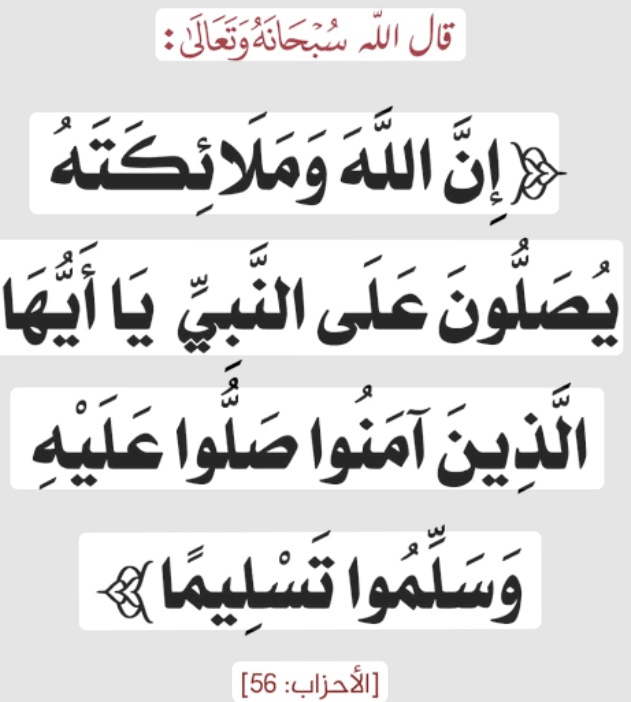 قال الله سُبْحَانَهُ وَتَعَالَىٰ:
﴿إِنَّ اللَّهَ وَمَلَائِكَتَهُ
يُصَلُّونَ عَلَى النَّبِيِّ يَا أَيُّهَا
الَّذِينَ آمَنُوا صَلُّوا عَلَيْهِ
وَسَلِّمُوا تَسْلِيمًا﴾
[الأحزاب: 56]